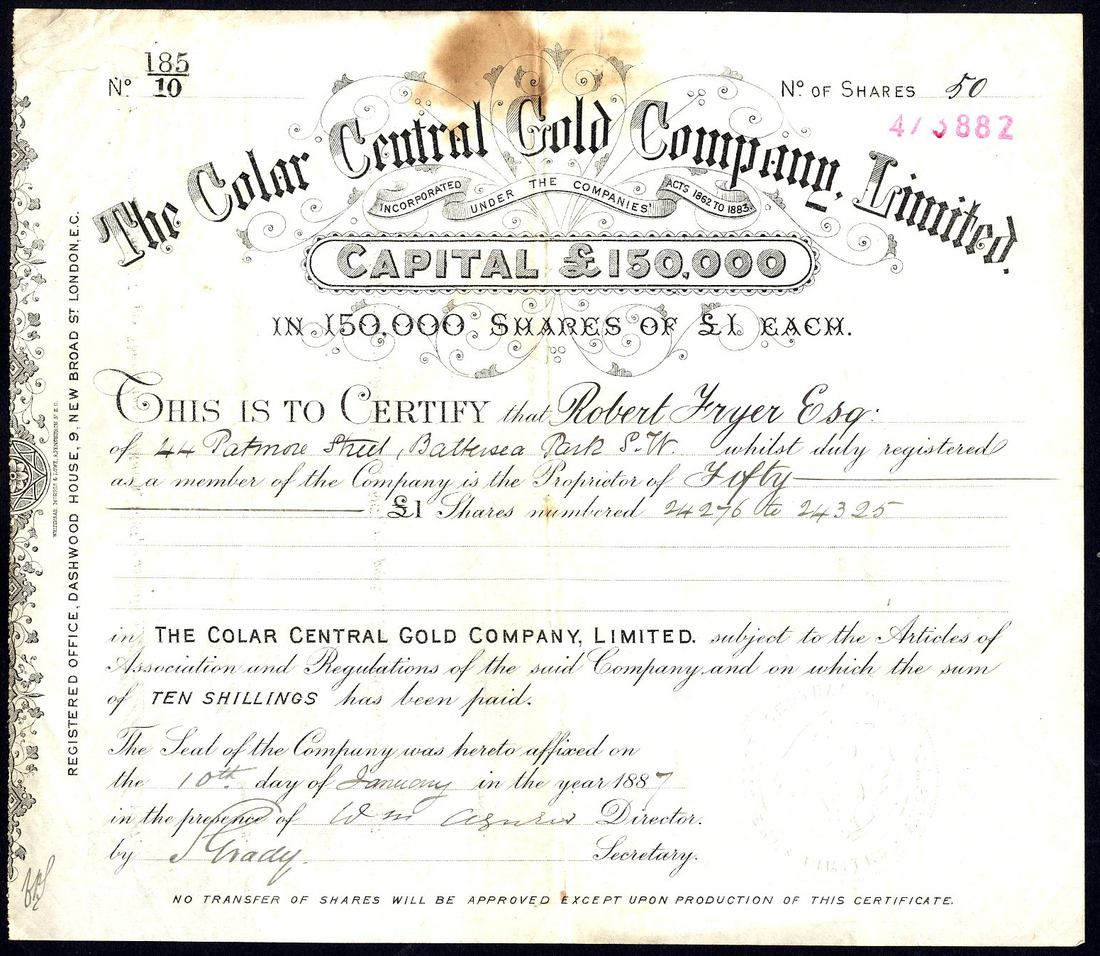 185
Nº 10
Nº OF SHARES 50
882
The Colar Central Gold Company, Limited.
INCORPORATED UNDER THE COMPANIES' ACTS 1862 TO 1883.
CAPITAL £150,000
IN 150,000 SHARES OF £1 EACH.
THIS IS TO CERTIFY that Robert Fryer Esq:
of 44 Patmore Street, Battersea Park S.W. whilst duly registered
as a member of the Company is the Proprietor of Fifty
£1 Shares numbered 24276 to 24325
in THE COLAR CENTRAL GOLD COMPANY, LIMITED. subject to the Articles of
Association and Regulations of the said Company and on which the sum
of TEN SHILLINGS has been paid.
The Seal of the Company was hereto affixed on
the 10th day of January in the year 1887
in the presence of Wm Director.
by Grady. Secretary.
NO TRANSFER OF SHARES WILL BE APPROVED EXCEPT UPON PRODUCTION OF THIS CERTIFICATE.
REGISTERED OFFICE, DASHWOOD HOUSE, 9, NEW BROAD ST LONDON, E.C.